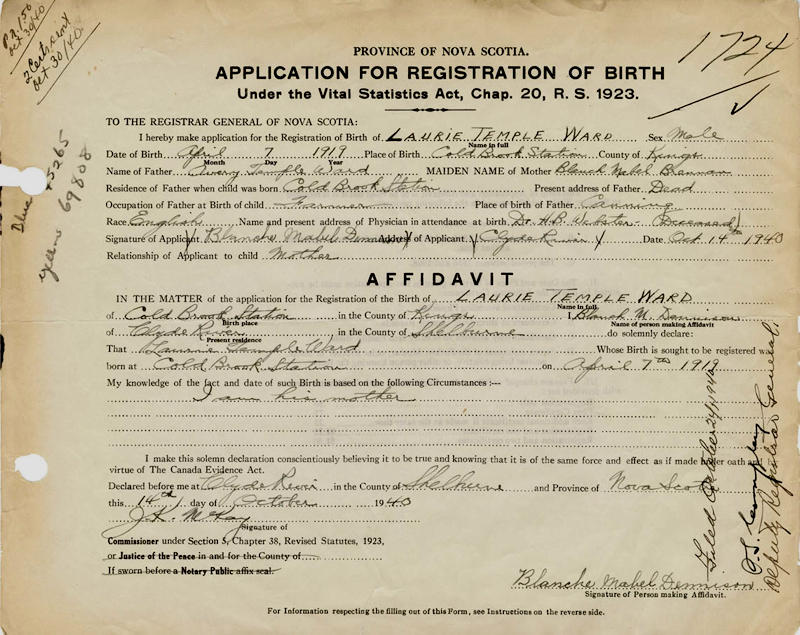 P.R. 1.50
Oct 30/40
2 Certs sent
Oct 30/40
1724
PROVINCE OF NOVA SCOTIA.
APPLICATION FOR REGISTRATION OF BIRTH
Under the Vital Statistics Act, Chap. 20, R. S. 1923.
TO THE REGISTRAR GENERAL OF NOVA SCOTIA:
I hereby make application for the Registration of Birth of LAURIE TEMPLE WARD Sex Male
Name in full
Date of Birth April 7 1919 Place of Birth Cold Brook Station County of Kings
Month Day Year
Name of Father Avery Temple Ward MAIDEN NAME of Mother Blanch Mabel Brennan
Residence of Father when child was born Cold Brook Station Present address of Father Dead
Occupation of Father at Birth of child Farmer Place of Birth of Father Canning
Race English Name and present address of Physician in attendance at birth Dr. H.B. Webster - Deceased
Signature of Applicant Blanche Mabel Dennison Address of Applicant Clyde River Date Oct 14th 1940
Relationship of Applicant to child Mother
Blue 75265
yellow 69808
AFFIDAVIT
IN THE MATTER of the application for the Registration of the Birth of LAURIE TEMPLE WARD
Name in full
of Cold Brook Station in the County of Kings I, Blanch M. Dennison
Birth place Name of person making Affidavit
of Clyde River in the County of Shelburne do solemnly declare:
Present residence
That Laurie Temple Ward Whose Birth is sought to be registered was
born at Cold Brook Station on April 7th 1919
My knowledge of the fact and date of such Birth is based on the following Circumstances :—
I am his mother
I make this solemn declaration conscientiously believing it to be true and knowing that it is of the same force and effect as if made under oath and
virtue of The Canada Evidence Act.
Declared before me at Clyde River in the County of Shelburne and Province of Nova Scotia
this 14th day of October 1940
J.A. McKay
Signature of
Commissioner under Section 5, Chapter 38, Revised Statutes, 1923,
or Justice of the Peace in and for the County of
If sworn before a Notary Public affix seal.
Filed October 24, 1940
Deputy Registrar General,
Blanche Mabel Dennison
Signature of Person making Affidavit.
For Information respecting the filling out of this Form, see Instructions on the reverse side.